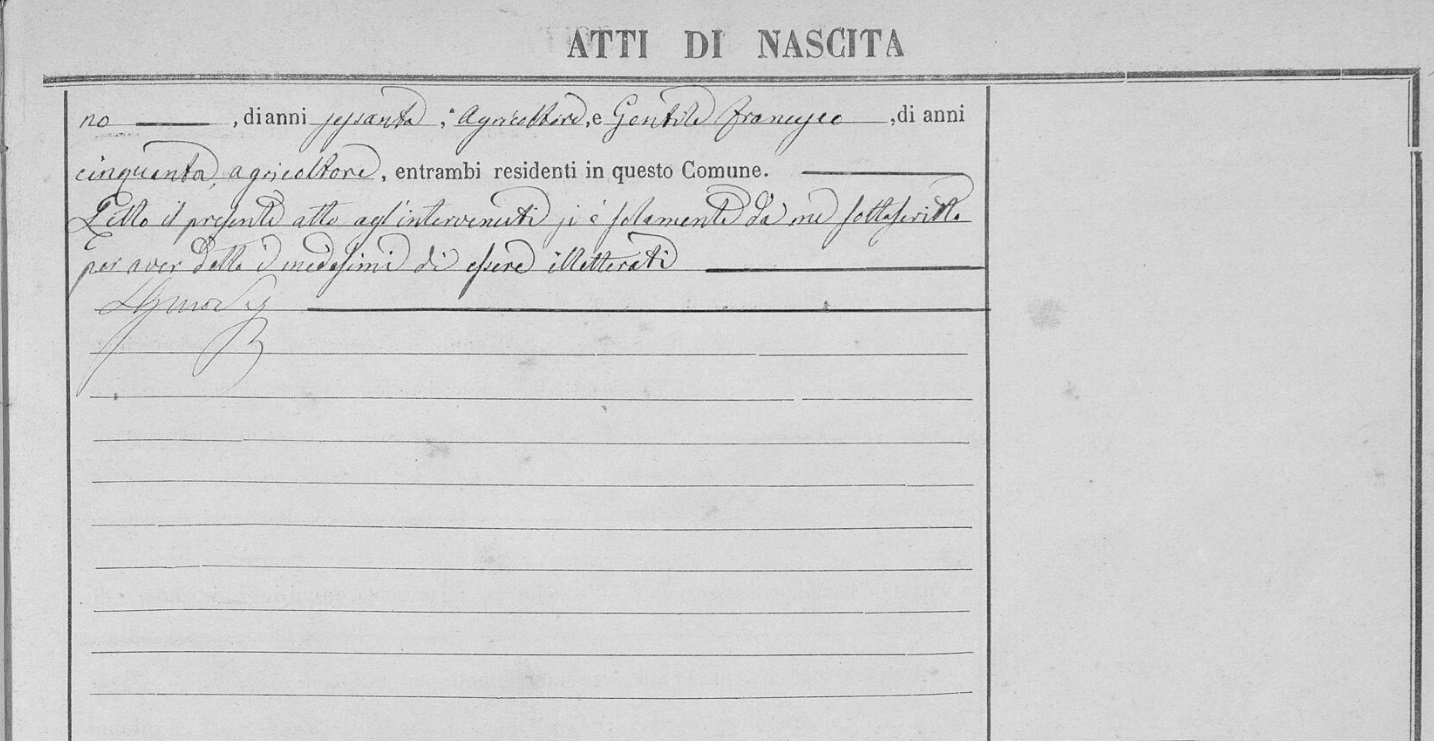 ATTI DI NASCITA
no , di anni sessanta, Agricoltore, e Gentile Francesco , di anni
cinquanta, agricoltore, entrambi residenti in questo Comune.
Letto il presente atto agl'intervenuti si è solamente da me sottoscritto
per aver detto i medesimi di essere illetterati